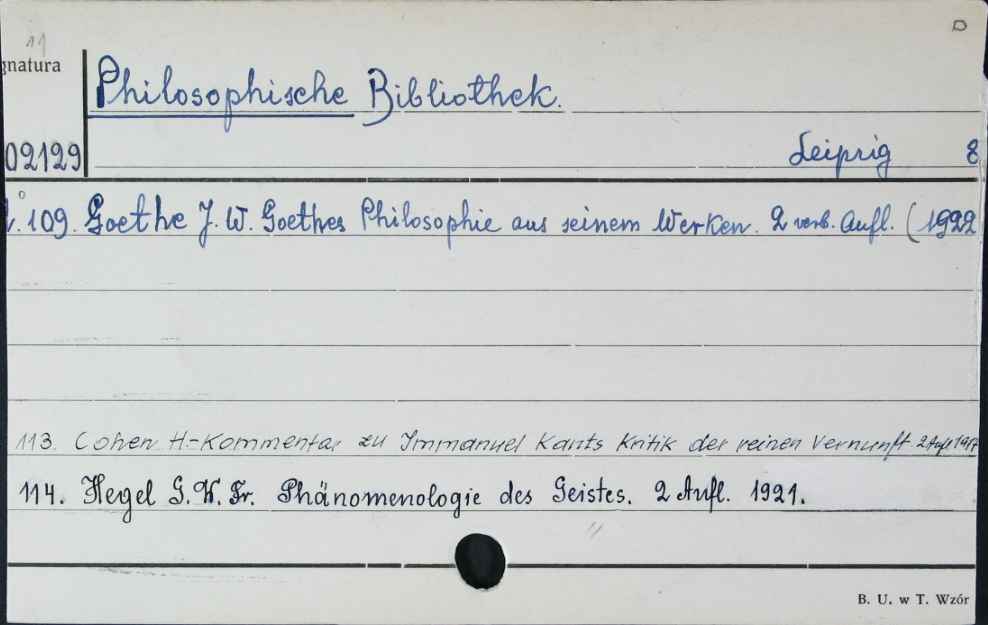 11
gnatura
Philosophische Bibliothek.
02129
Leipzig 8°
109. Goethe J. W. Goethes Philosophie aus seinem Werken. 2 verb. Aufl. (1922
113. Cohen H-Kommentar zu Immanuel Kants Kritik der reinen Vernunft 2 Aufl 1917
114. Hegel G. W. Fr. Phänomenologie des Geistes. 2 Aufl. 1921.
B. U. w T. Wzór